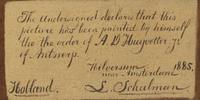 The Undersigned declares that this
picture has been painted by himself
the the order of A. D. Huyvetter Jr.
of Antwerp.
Hilversum
near Amsterdam 1885.
Holland. L. Schulman